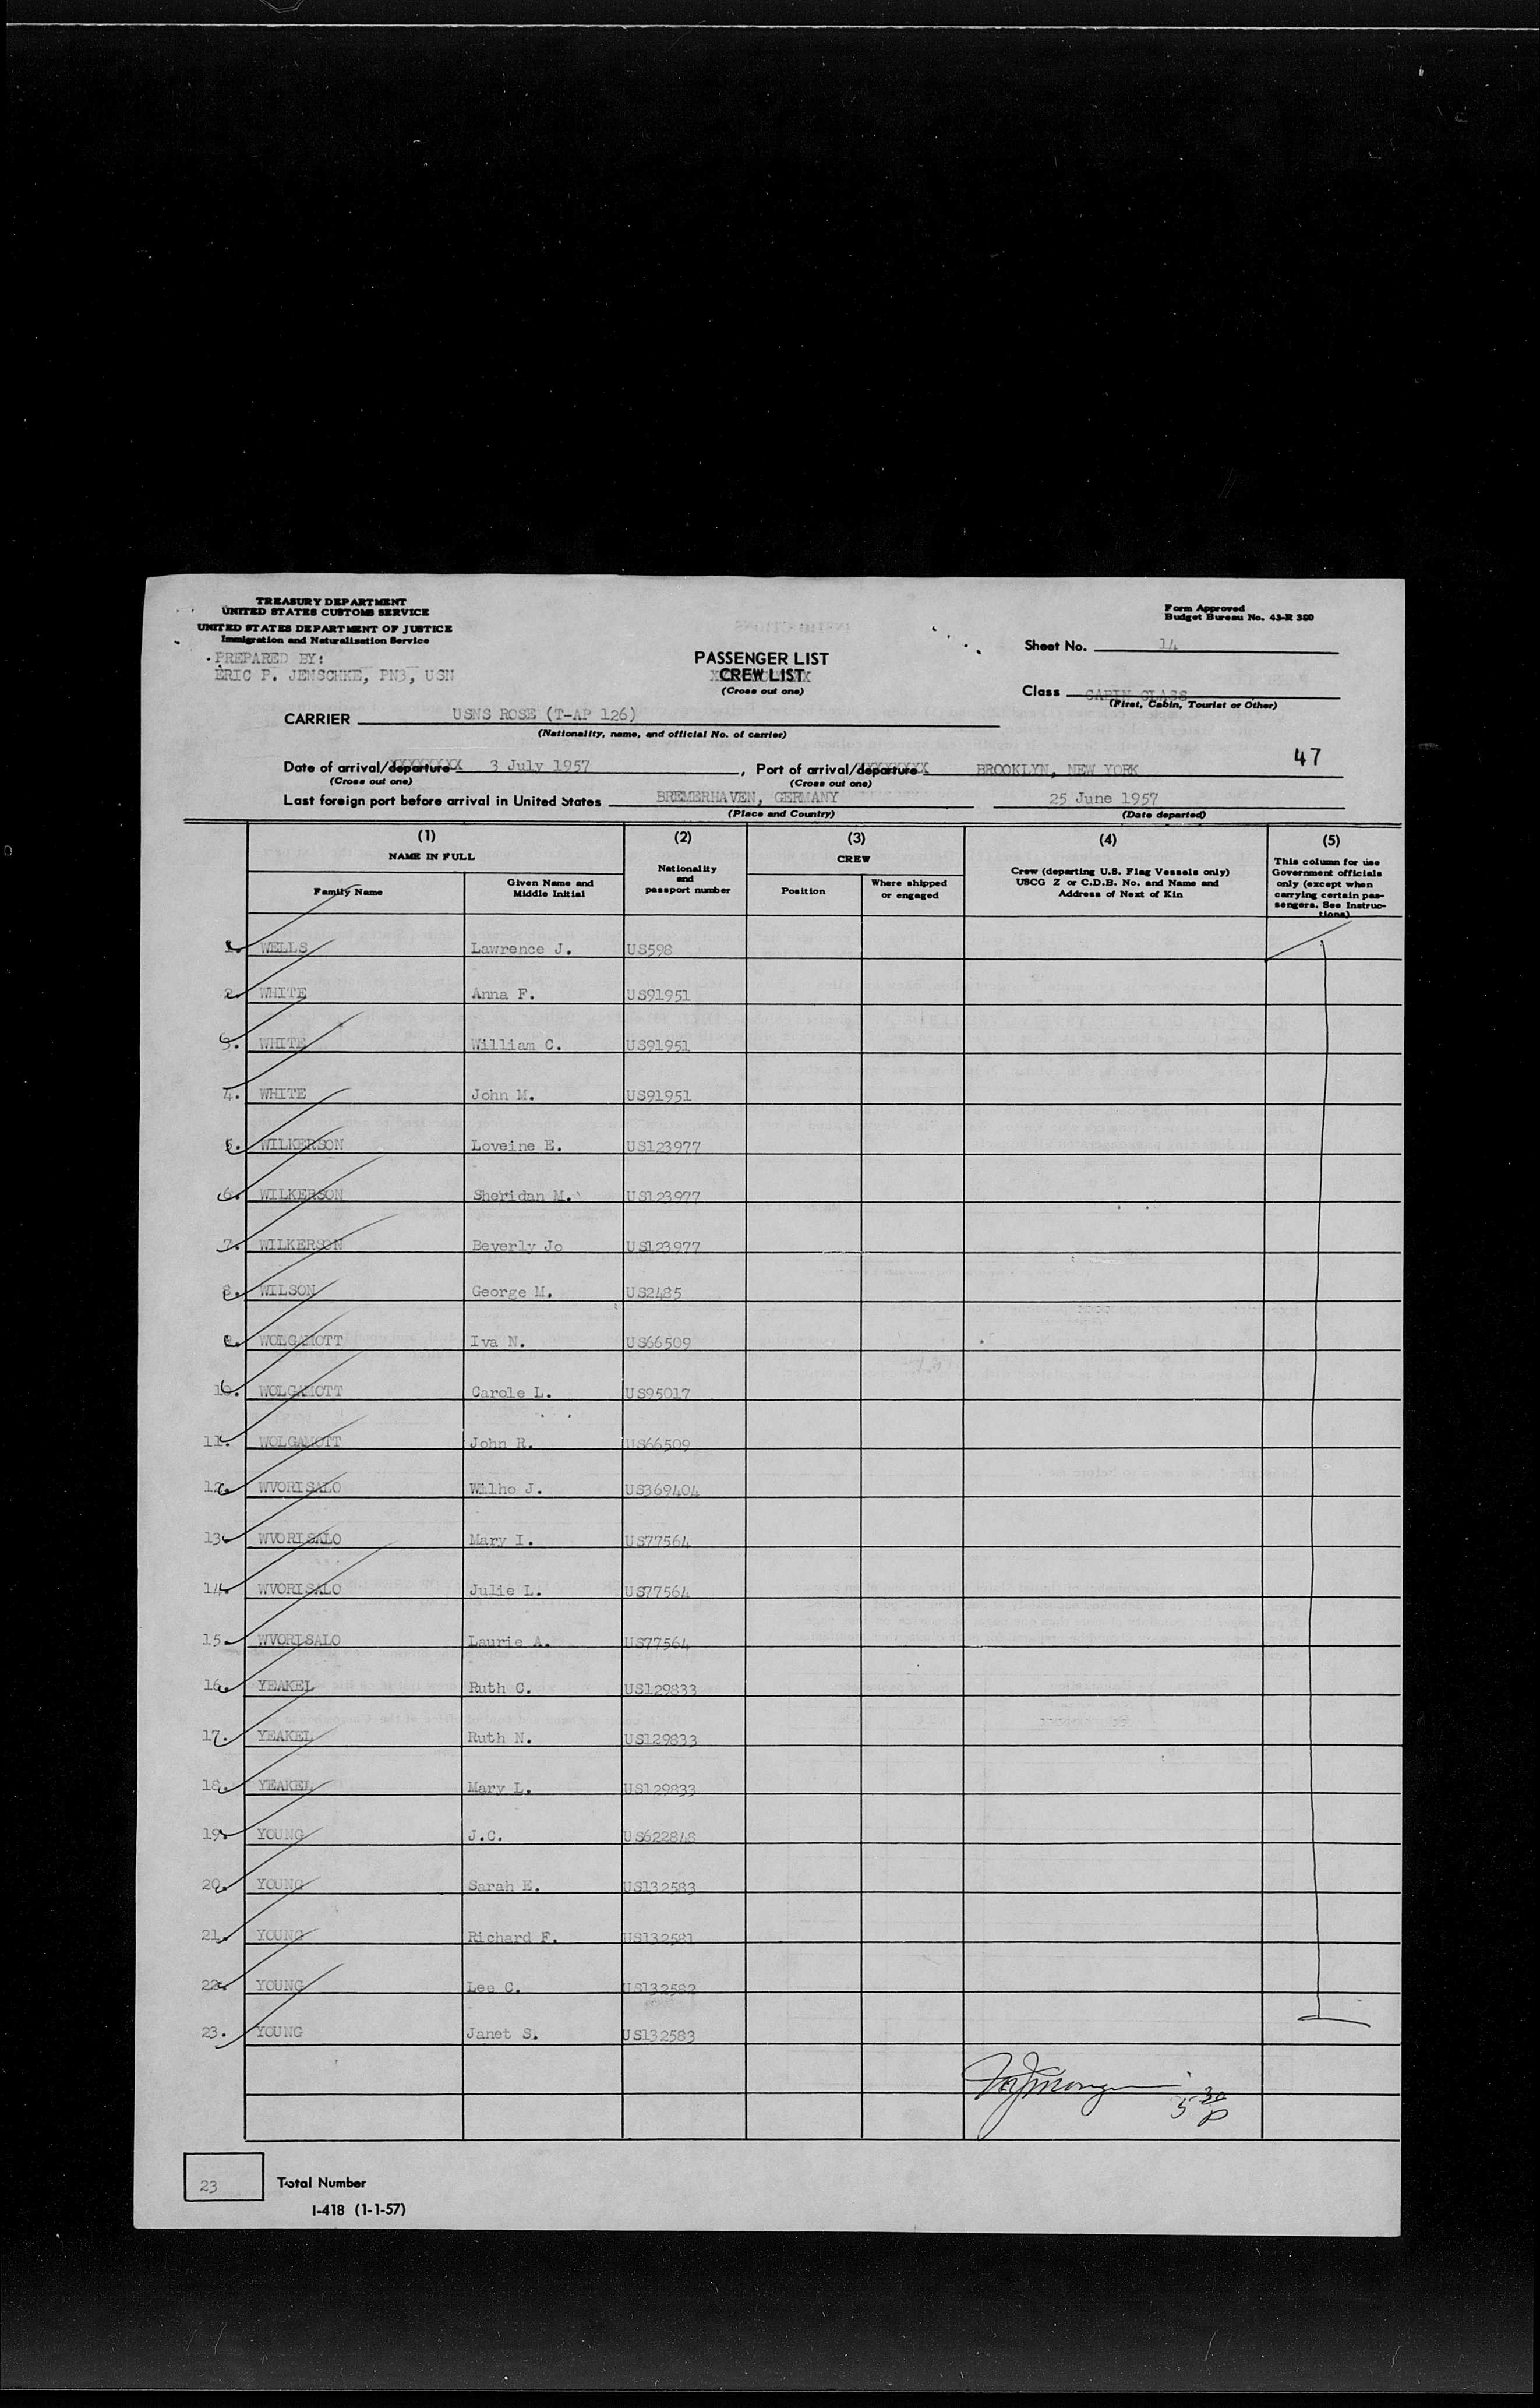 TREASURY DEPARTMENT
UNITED STATES CUSTOMS SERVICE
UNITED STATES DEPARTMENT OF JUSTICE
Immigration and Naturalization Service
PREPARED BY:
ERIC P. JENSCHKE, PN3, USN
PASSENGER LIST
CREW LIST
(Cross out one)
Form Approved
Budget Bureau No. 43-R 380
Sheet No. 14
Class CABIN CLASS
(First, Cabin, Tourist or Other)
CARRIER USNS ROSE (T-AP 126)
(Nationality, name, and official No. of carrier)
47
Date of arrival/departure 3 July 1957, Port of arrival/departure BROOKLYN, NEW YORK
(Cross out one) (Cross out one)
Last foreign port before arrival in United States BREMERHAVEN, GERMANY 25 June 1957
(Place and Country) (Date departed)
(1) (2) (3) (4) (5)
NAME IN FULL
Family Name
Given Name and Middle Initial
Nationality and passport number
CREW
Position
Where shipped or engaged
Crew (departing U.S. Flag Vessels only)
USCG Z or C.D.B. No. and Name and
Address of Next of Kin
This column for use
Government officials
only (except when
carrying certain pas-
sengers. See Instruc-
tions)
1. WELLS Lawrence J. US598
2. WHITE Anna F. US91951
3. WHITE William C. US91951
4. WHITE John M. US91951
5. WILKERSON Loveine E. US123977
6. WILKERSON Sheridan M. US123977
7. WILKERSON Beverly Jo US123977
8. WILSON George M. US2485
9. WOLGAMOTT Iva N. US66509
10. WOLGAMOTT Carole L. US95017
11. WOLGAMOTT John R. US66509
12. WVORISALO Wilho J. US369404
13. WVORISALO Mary I. US77564
14. WVORISALO Julie L. US77564
15. WVORISALO Laurie A. US77564
16. YEAKEL Ruth C. US129833
17. YEAKEL Ruth N. US129833
18. YEAKEL Mary L. US129833
19. YOUNG J.C. US622848
20. YOUNG Sarah E. US132583
21. YOUNG Richard F. US132581
22. YOUNG Lee C. US132582
23. YOUNG Janet S. US132583
5 30 P
23 Total Number
I-418 (1-1-57)